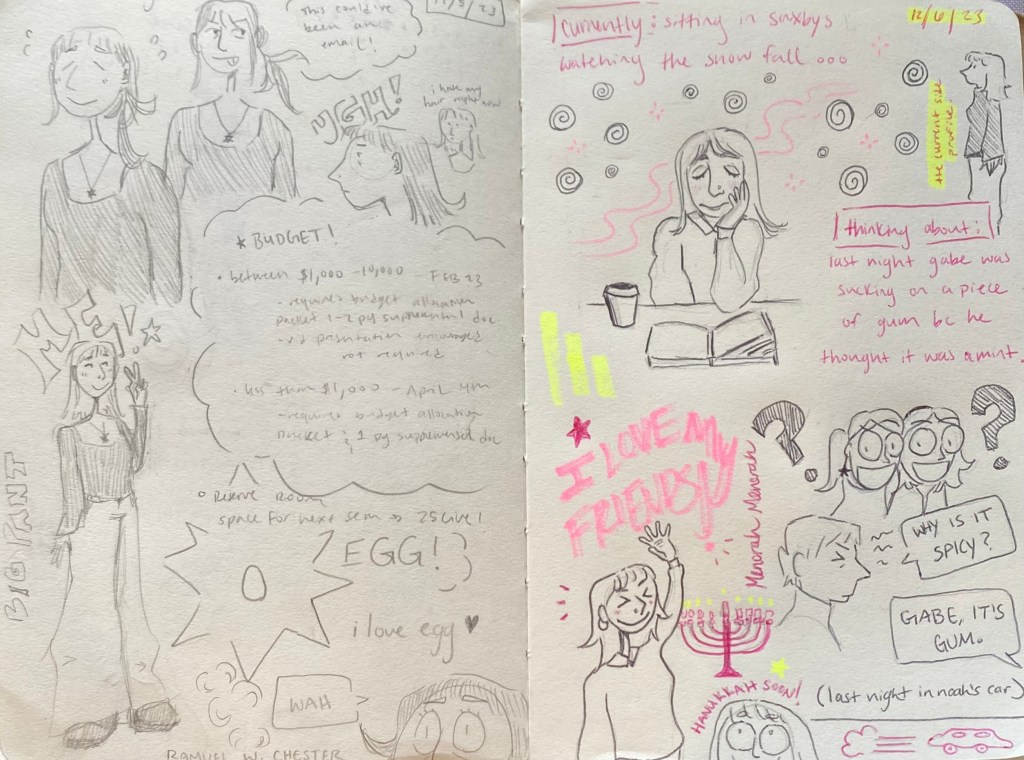 this could've
been an
email!
12/5/23
UGH!
i hate my
hair right now
* BUDGET!
• between $1,000 - 10,000 - FEB 23
- requires budget allocation
packet 1-2 pg supplemental doc
- vid presentation encouraged
not required
• less than $1,000 - April 4th
- requires budget allocation
packet & 1 pg supplemental doc
ME!
BIG PANT
Reserve Room
space for next sem → 25Live!
EGG!
O
i love egg ♥
WAH
RAMUEL W. CHESTER
currently: sitting in saxbys
watching the snow fall ...
12/6/23
the current side
profile
thinking about:
last night gabe was
sucking on a piece
of gum bc he
thought it was a mint.
I LOVE MY
FRIENDS!
Menorah Menorah
? ?
WHY IS IT
SPICY?
GABE, IT'S
GUM.
HANUKKAH SOON!
(last night in noah's car)